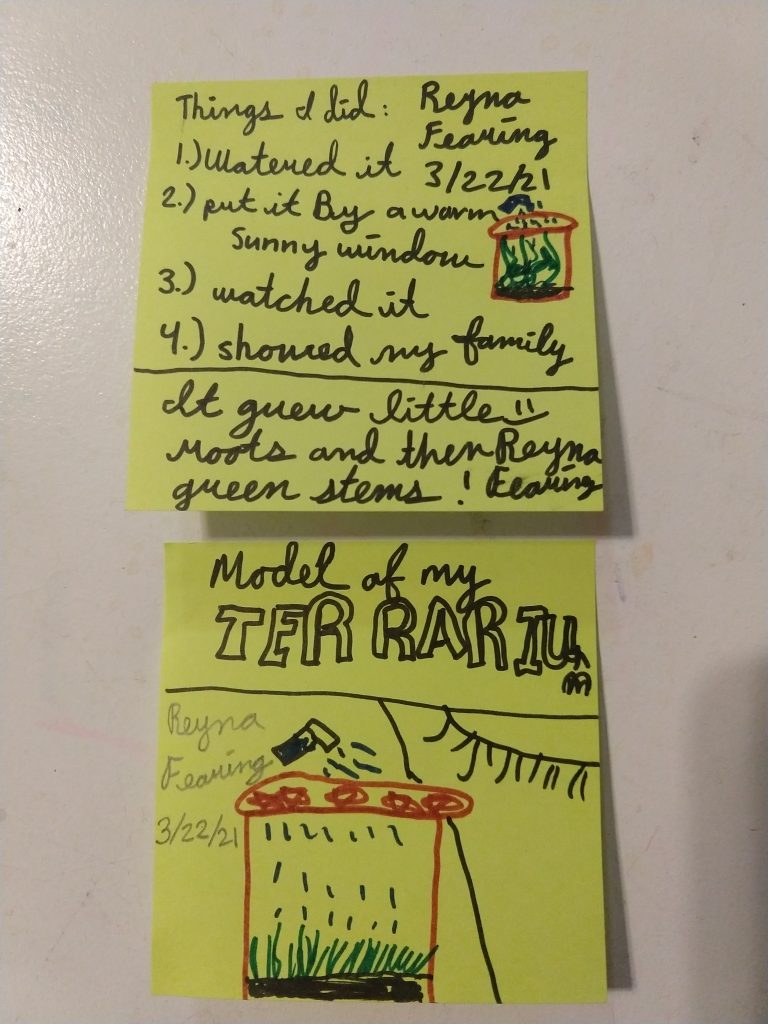 Things I did:
Reyna
Fearing
3/22/21
1.) Watered it
2.) put it By a warm
Sunny window
3.) watched it
4.) showed my family
It grew little
roots and then
green stems!
Reyna
Fearing
Model of my
TERRARIUm
Reyna
Fearing
3/22/21